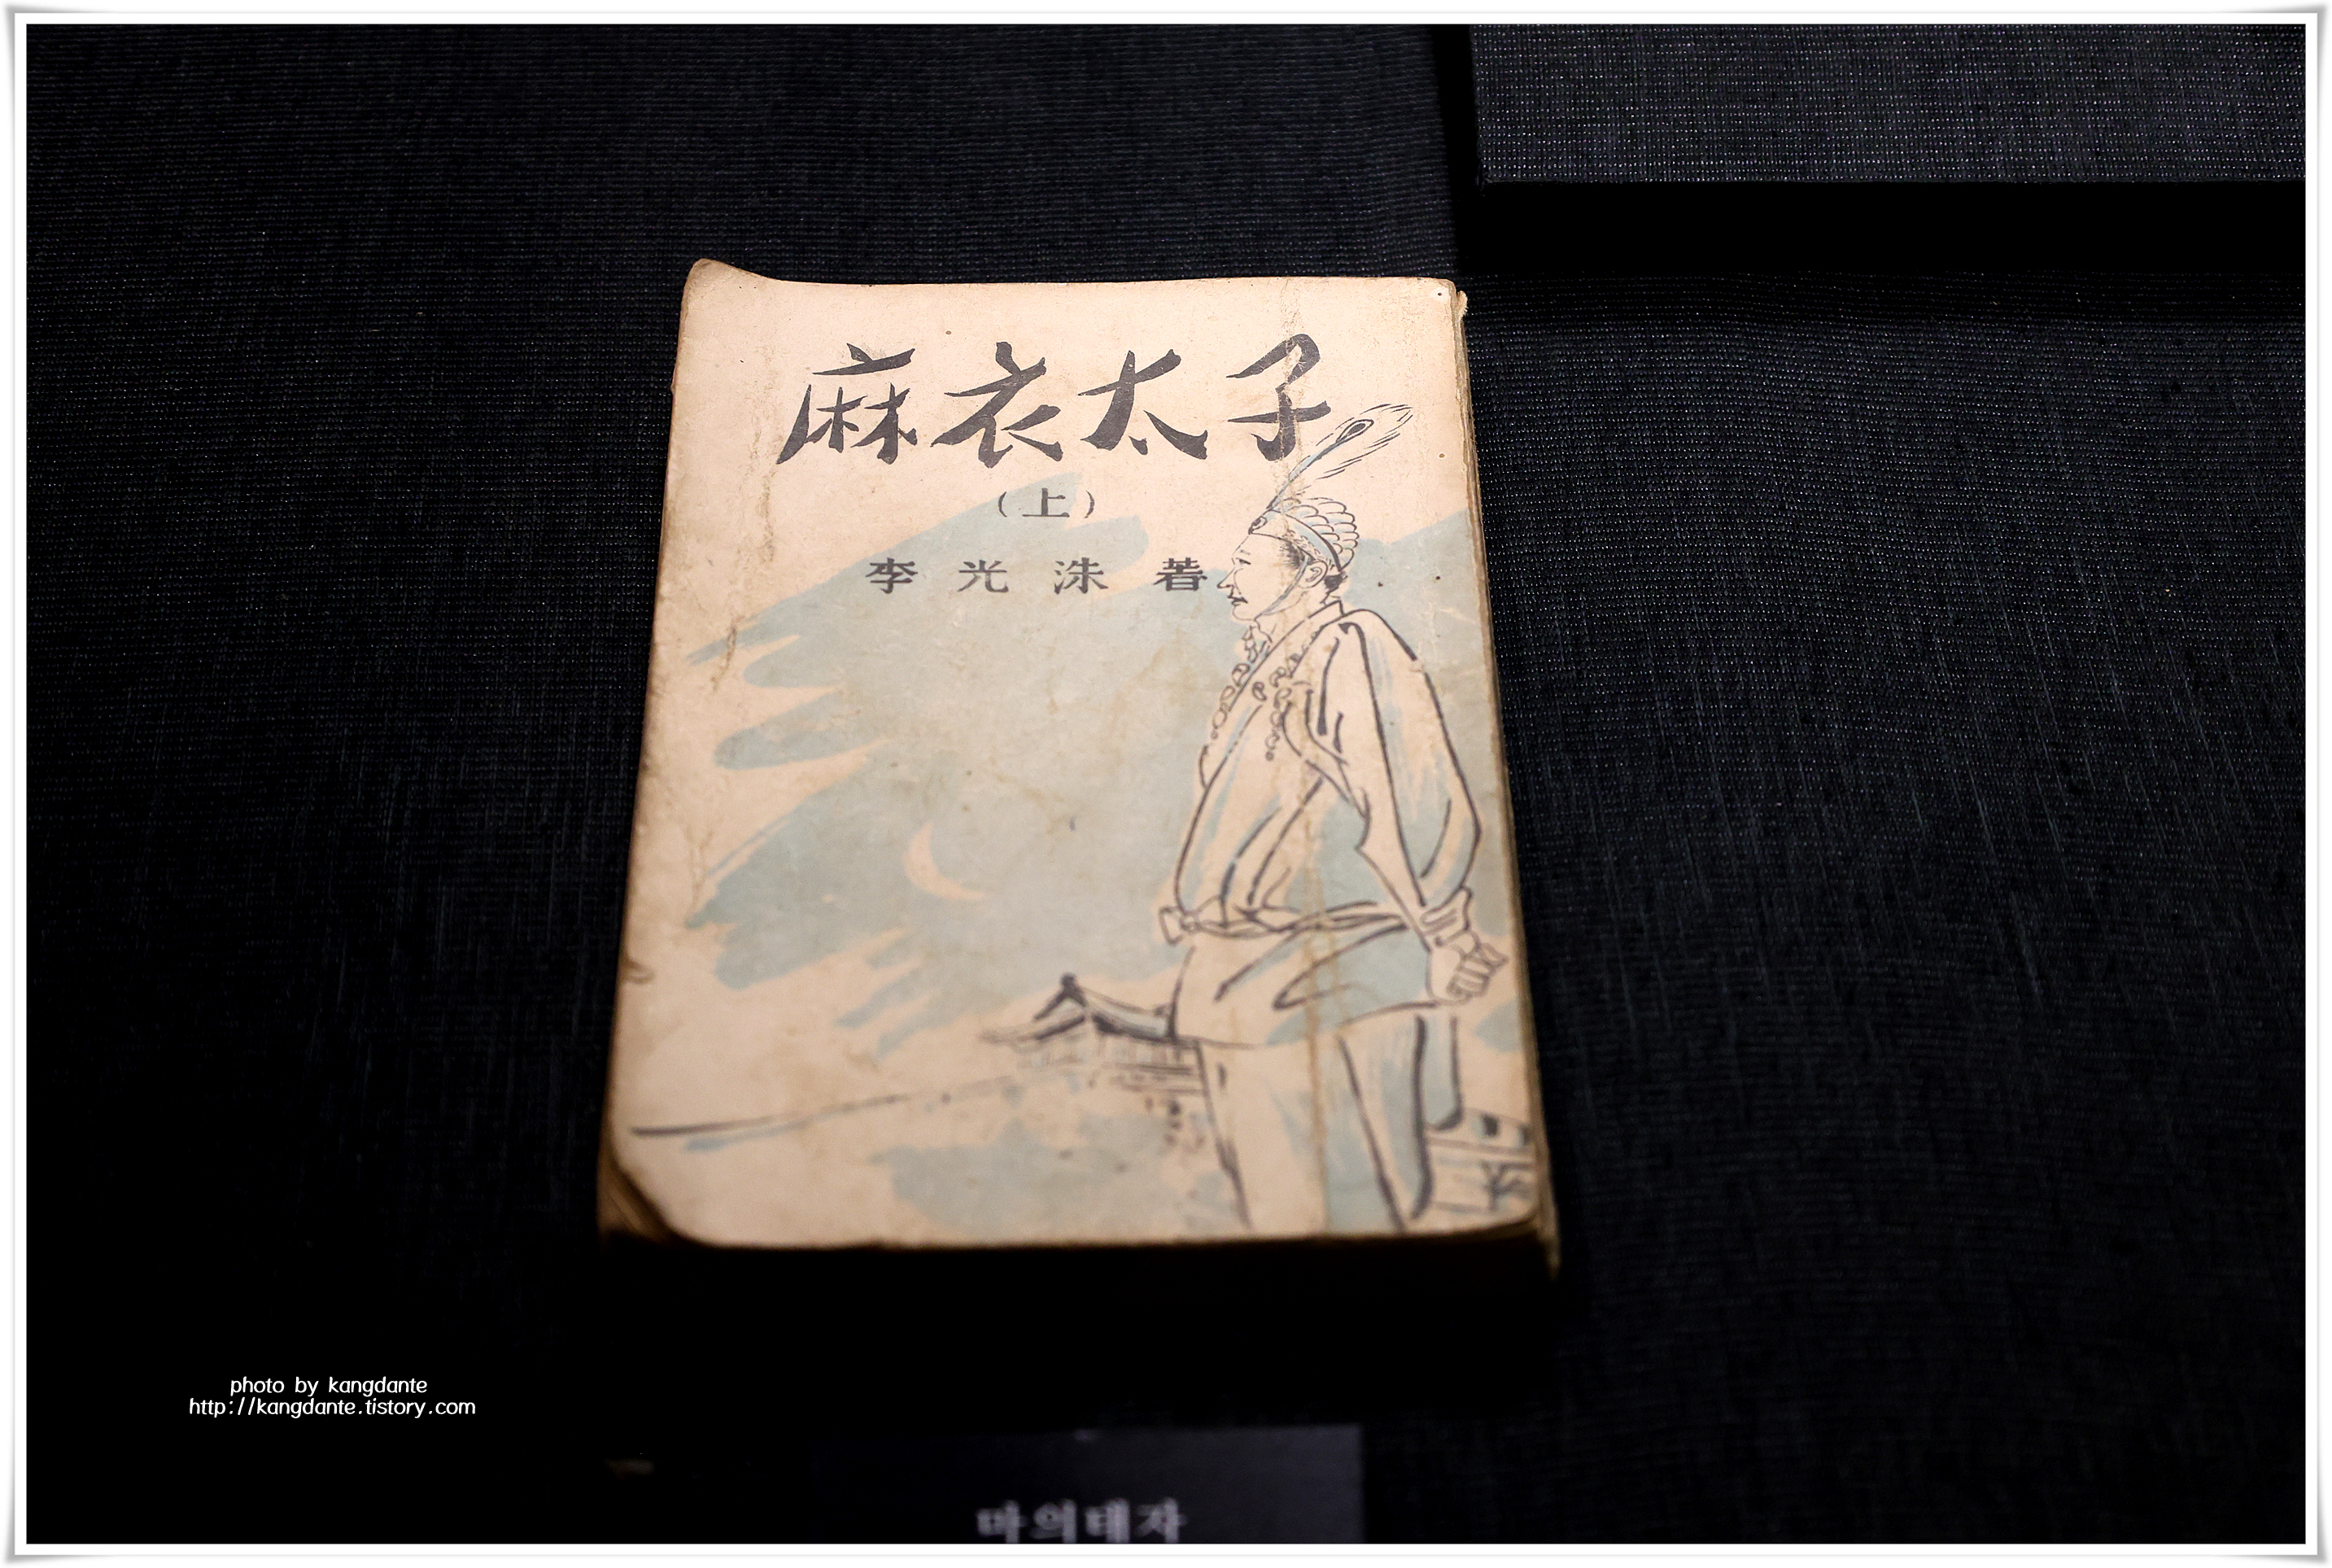 麻衣太子
(上)
李光洙著
photo by kangdante
http://kangdante.tistory.com
마의태자